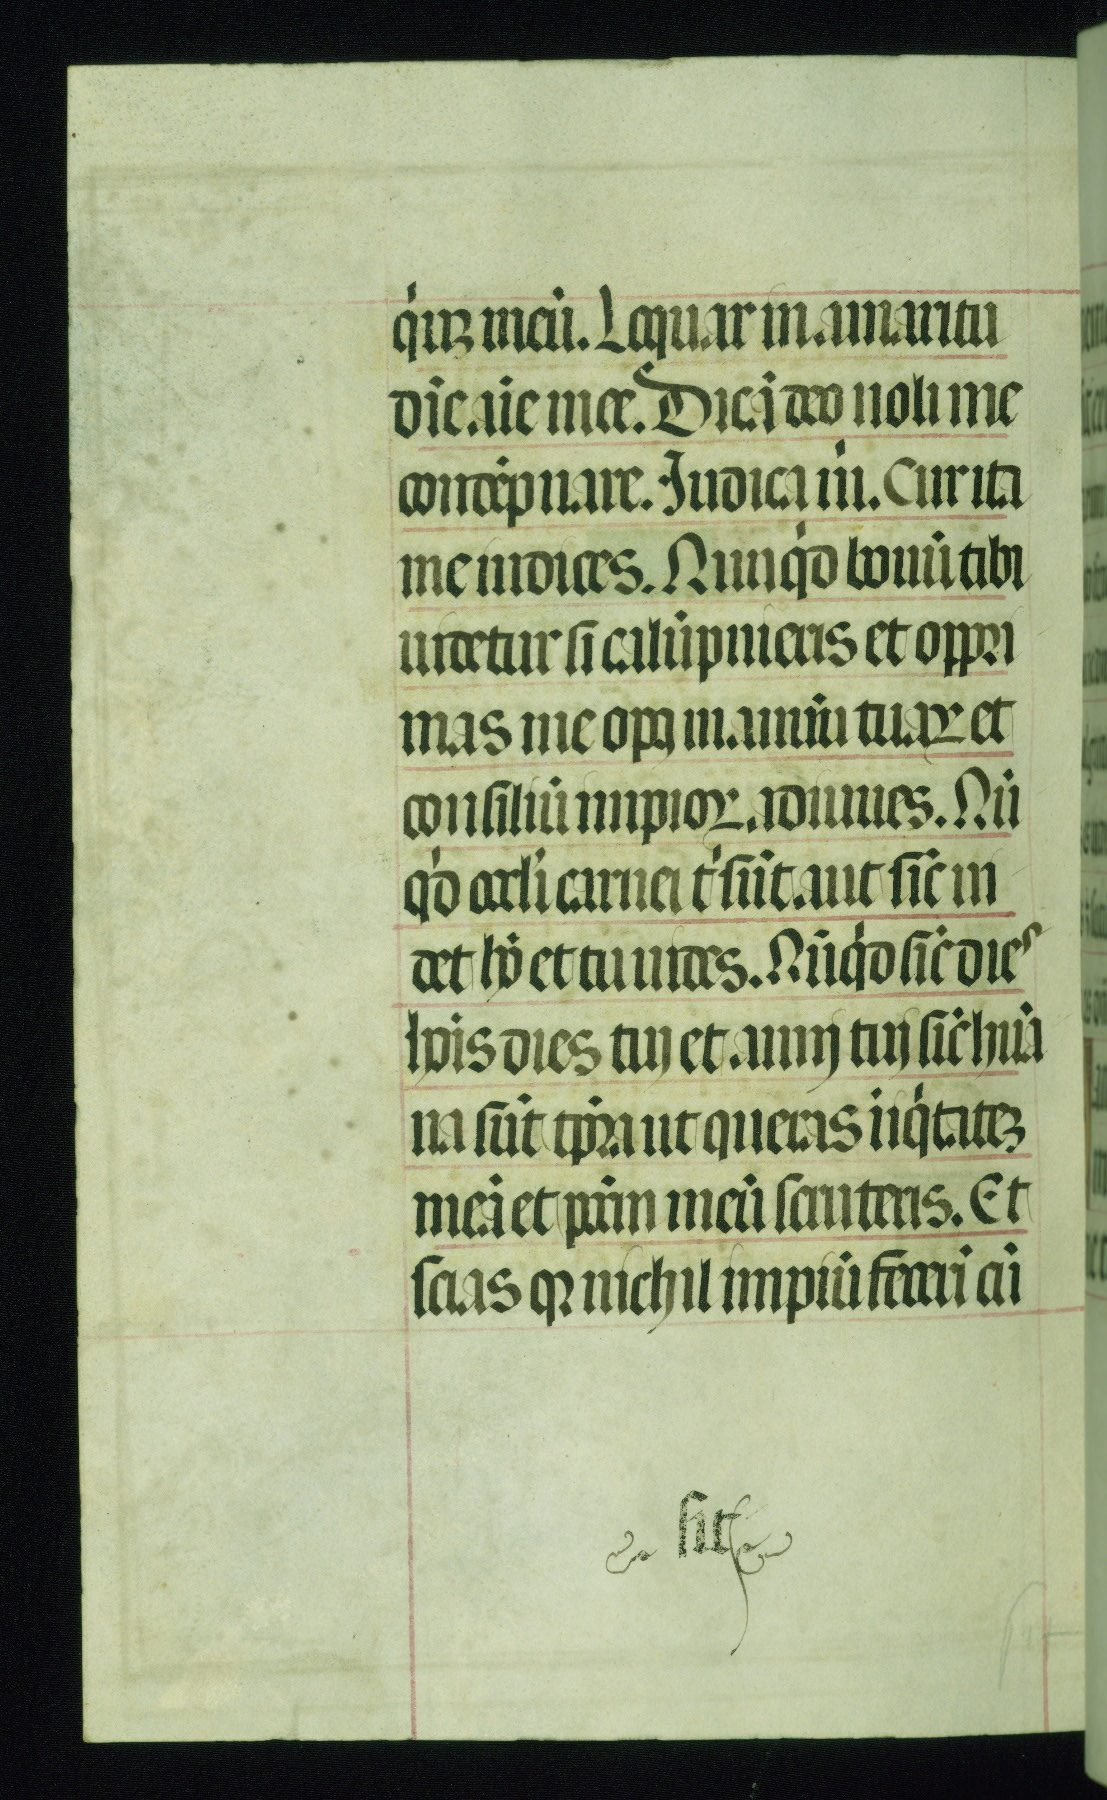 q̇uiꝫ meū. Loquar in amaritu
dīe aīe mee. Dicā deo noli me
condēpnare. Iudica m̄i. Cur ita
me iudices. Nunqͥd bonū tibi
uidetur si calūpnieris et oppri
mas me opꝯ manuū tuaꝝ et
consiliū impioꝝ adiuues. Nū
qͥd oculi carnei tͥ sūt aut sic̄ ui
det hō et tu uides. Nūqͥd sic̄ dies
hoīs dies tui et anni tui sic̄ hūa
na sūt tp̄ra ut queras iīqͥtateꝫ
meā et pctm̄ meū scruteris. Et
scias qꝛ nichil impiū fecerī cū
sit